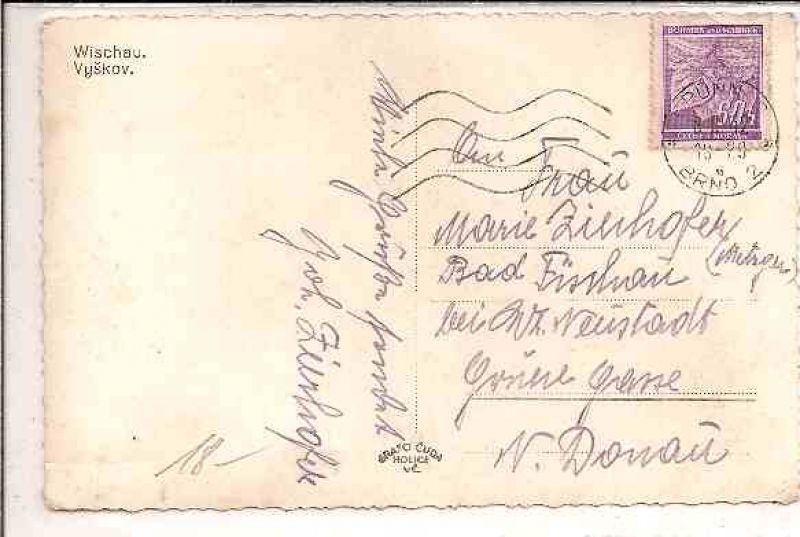 Wischau.
Vyškov.
BÖHMEN UND MÄHREN
60
ČECHY A MORAVA
BRNO 2
An
Frau
Marie Zierhofer
(Metzger)
Bad Fischau
bei Wr. Neustadt
Grüne Gasse
N. Donau
Viele Grüße sendet
Joh. Zierhofer
BRATŘI ČUDA
HOLICE
vČ
18-